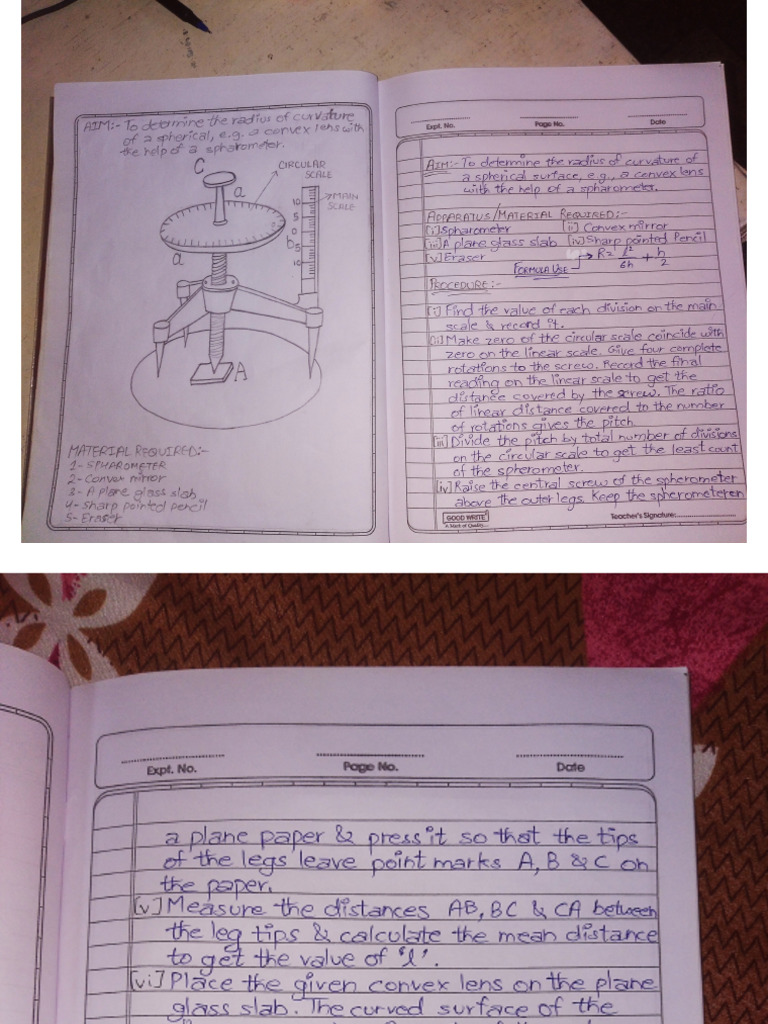 AIM:- To determine the radius of curvature
of a spherical, e.g. a convex lens with
the help of a spharometer.
C
CIRCULAR
SCALE
a
MAIN
SCALE
10
5
0
b
5
10
a
A
MATERIAL REQUIRED:-
1- SPHAROMETER
2- Convex mirror
3- A plane glass slab
4- Sharp pointed pencil
5- Eraser
Expt. No. Page No. Date
AIM:- To determine the radius of curvature of
a spherical surface, e.g., a convex lens
with the help of a spharometer.
APPARATUS/MATERIAL REQUIRED:-
[i] Spharometer [ii] Convex mirror
[iii] A plane glass slab [iv] Sharp pointed Pencil
[v] Eraser
FORMULA USE → R = l²/6h + h/2
PROCEDURE:-
[i] Find the value of each division on the main
scale & record it.
[ii] Make zero of the circular scale coincide with
zero on the linear scale. Give four complete
rotations to the screw. Record the final
reading on the linear scale to get the
distance covered by the screw. The ratio
of linear distance covered to the number
of rotations gives the pitch
[iii] Divide the pitch by total number of divisions
on the circular scale to get the least count
of the spherometer.
[iv] Raise the central screw of the spherometer
above the outer legs. Keep the spherometer on
GOOD WRITE
A Mark of Quality
Teacher's Signature:
Expt. No. Page No. Date
a plane paper & press it so that the tips
of the legs leave point marks A, B & C on
the paper.
[v] Measure the distances AB, BC & CA between
the leg tips & calculate the mean distance
to get the value of 'l'.
[vi] Place the given convex lens on the plane
glass slab. The curved surface of the